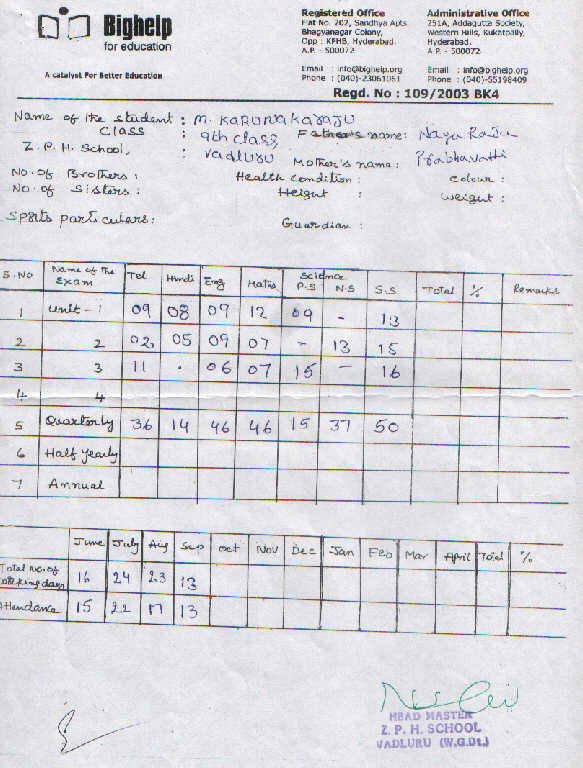 Bighelp
for education
A catalyst For Better Education
Registered Office
Flat No. 202, Sandhya Apts
Bhagyanagar Colony,
Opp : KPHB, Hyderabad.
A.P. - 500072
Email : info@bighelp.org
Phone : (040)-23061061
Administrative Office
251A, Addagutta Society,
Western Hills, Kukatpally,
Hyderabad.
A.P. - 500072
Email : info@bighelp.org
Phone : (040)-55198409
Regd. No : 109/2003 BK4
Name of the student : M. KARUNAKARAJU
Class : 9th class, Father's name: Nagu Raju
Z. P. H. School, : Vadluru Mother's name: Prabhavathi
No. of Brothers : Health condition : colour :
No. of Sisters : Height : weight :
Sports particulars : Guardian :
S.NO Name of the Exam Tel Hindi Eng Maths Science P.S N.S S.S Total % Remarks
1 Unit - 1 09 08 07 12 09 - 13
2 2 02 05 09 07 - 13 15
3 3 11 . 06 07 15 - 16
4 4
5 Quarterly 36 14 46 46 15 37 50
6 Half yearly
7 Annual
June July Aug Sep Oct Nov Dec Jan Feb Mar April Total %
Total No. of working days 16 24 23 13
Attendance 15 22 17 13
HEAD MASTER
Z. P. H. SCHOOL
VADLURU (W.G.Dt.)